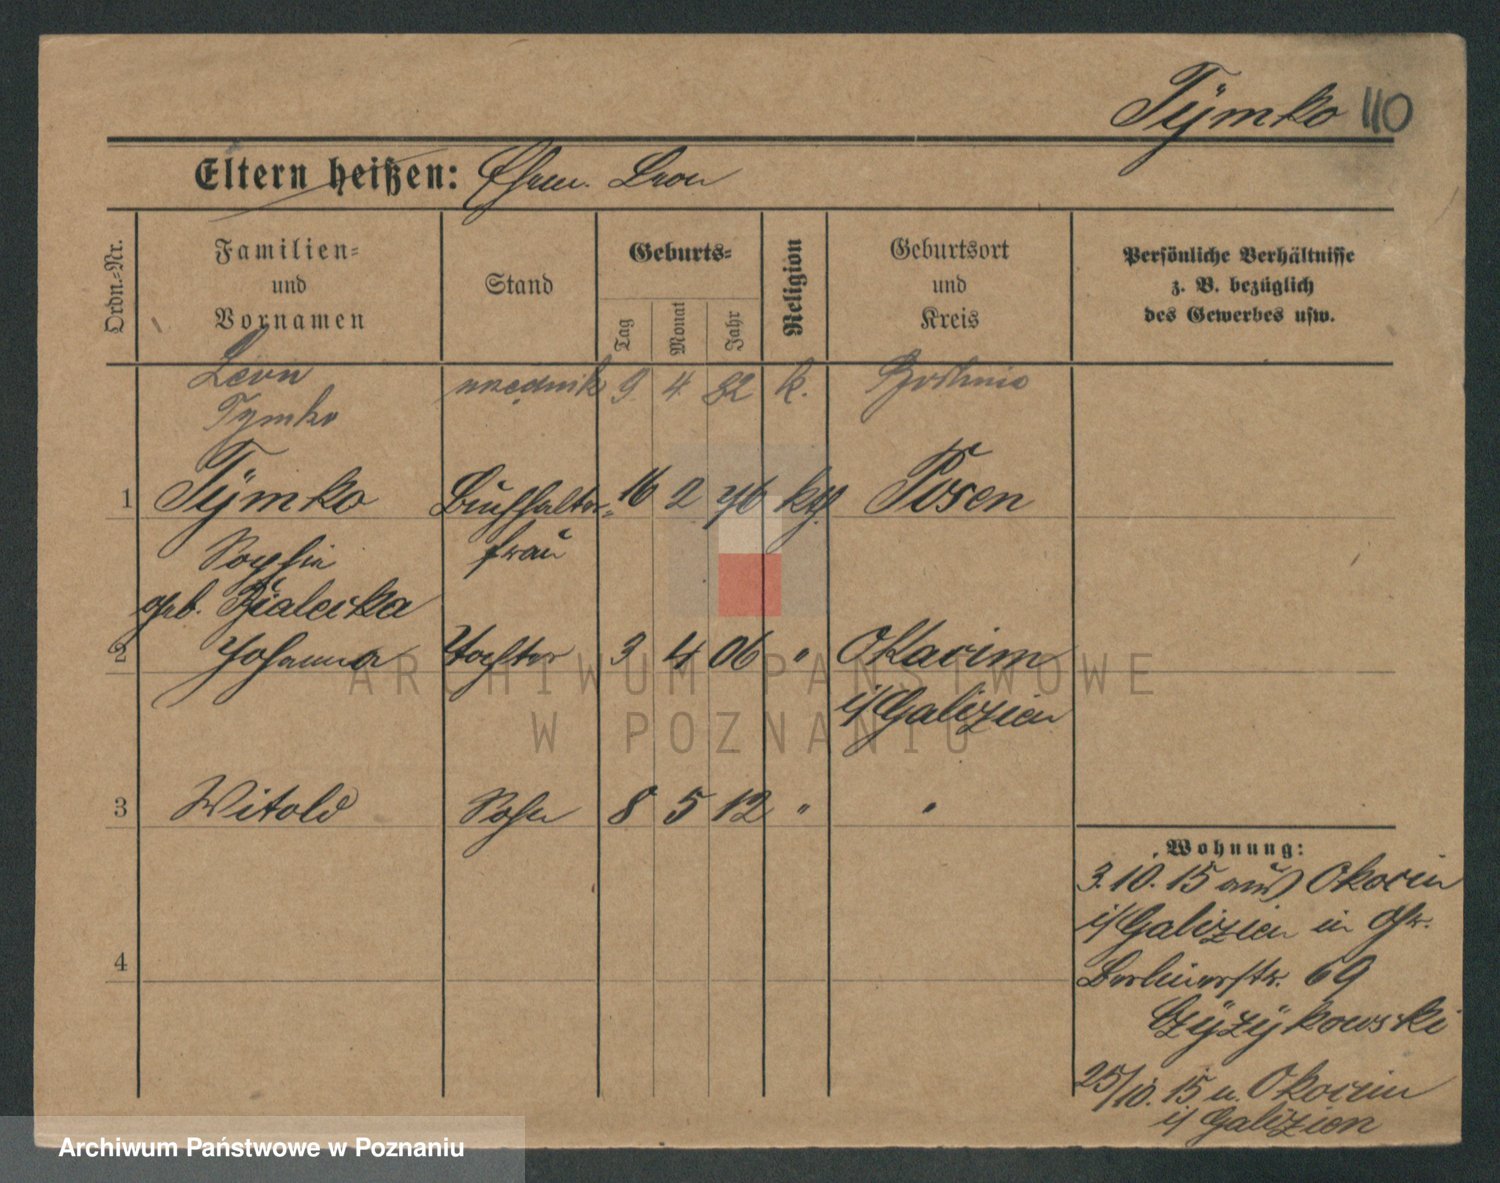 Tÿmko 110
Eltern heißen: Ehem. Leon
Ordn.=Nr.
Familien=
und
Vornamen
Stand
Geburts=
Tag
Monat
Jahr
Religion
Geburtsort
und
Kreis
Persönliche Verhältnisse
z. B. bezüglich
des Gewerbes usw.
Leon urzędnik 9 4 82 k. Bochnia
Tymko
1 Tÿmko Buchhalter= 16 2 76 kth. Posen
Sophie frau
geb. Bialecka
2 Johanna Tochter 3 4 06 " Okocim
i/Galizien
3 Witold Sohn 8 5 12 " "
4
Wohnung:
3.10.15 aus Okocim
i/Galizien in Gr.
Berlinerstr. 69
Czÿzÿkowski
25/10. 15 n. Okocim
i/ Galizien
ARCHIWUM PAŃSTWOWE
W POZNANIU
Archiwum Państwowe w Poznaniu